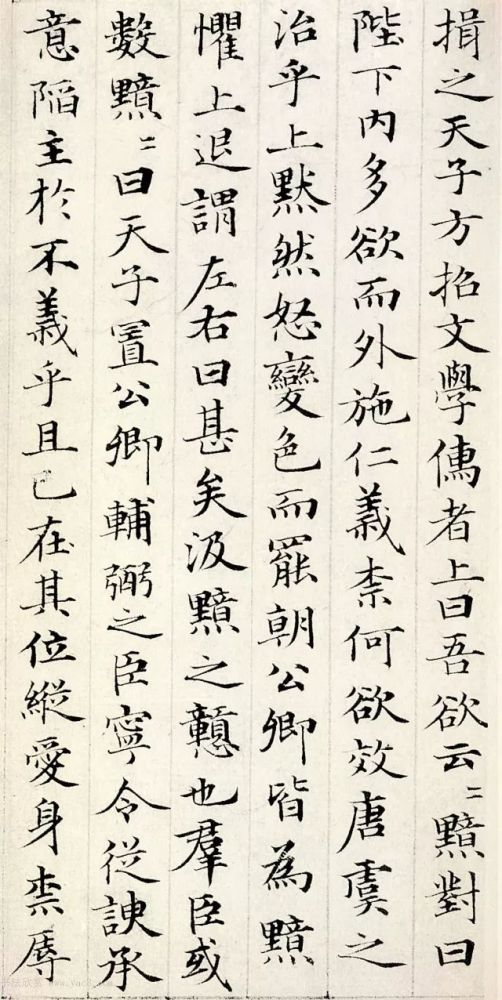 揖之天子方招文學儒者上曰吾欲云〻黯對曰
陛下内多欲而外施仁義柰何欲效唐虞之
治乎上默然怒變色而罷朝公卿皆為黯
懼上退謂左右曰甚矣汲黯之戇也羣臣或
數黯〻曰天子置公卿輔弼之臣寧令從諛承
意陷主於不義乎且已在其位縱愛身柰辱